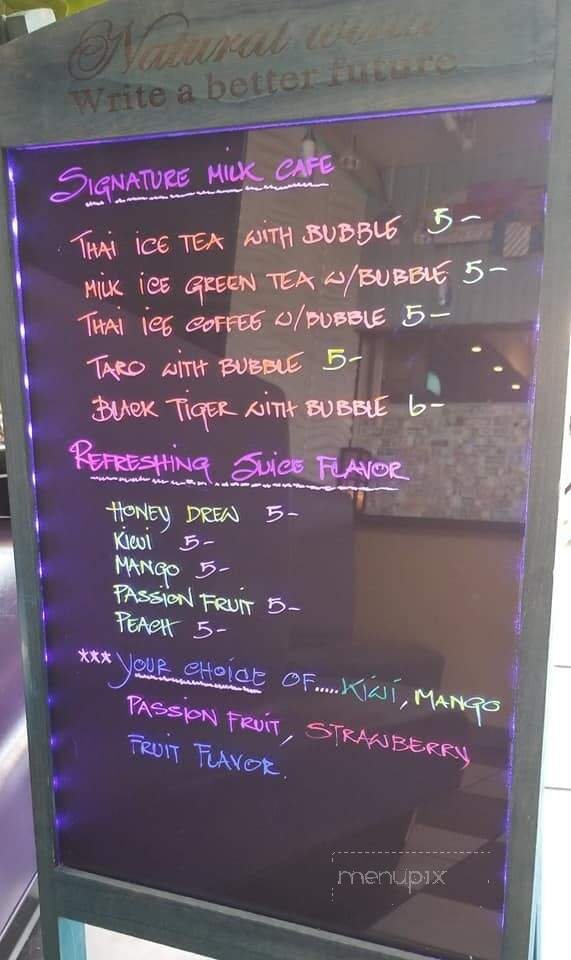 Natural
Write a better future
SIGNATURE MILK CAFE
THAI ICE TEA WITH BUBBLE 5-
MILK ICE GREEN TEA W/BUBBLE 5-
THAI ICE COFFEE W/BUBBLE 5-
TARO WITH BUBBLE 5-
BLACK TIGER WITH BUBBLE 6-
REFRESHING JUICE FLAVOR
HONEY DREW 5-
KIWI 5-
MANGO 5-
PASSION FRUIT 5-
PEACH 5-
*** YOUR CHOICE OF.....KIWI, MANGO
PASSION FRUIT, STRAWBERRY
FRUIT FLAVOR.
menupix